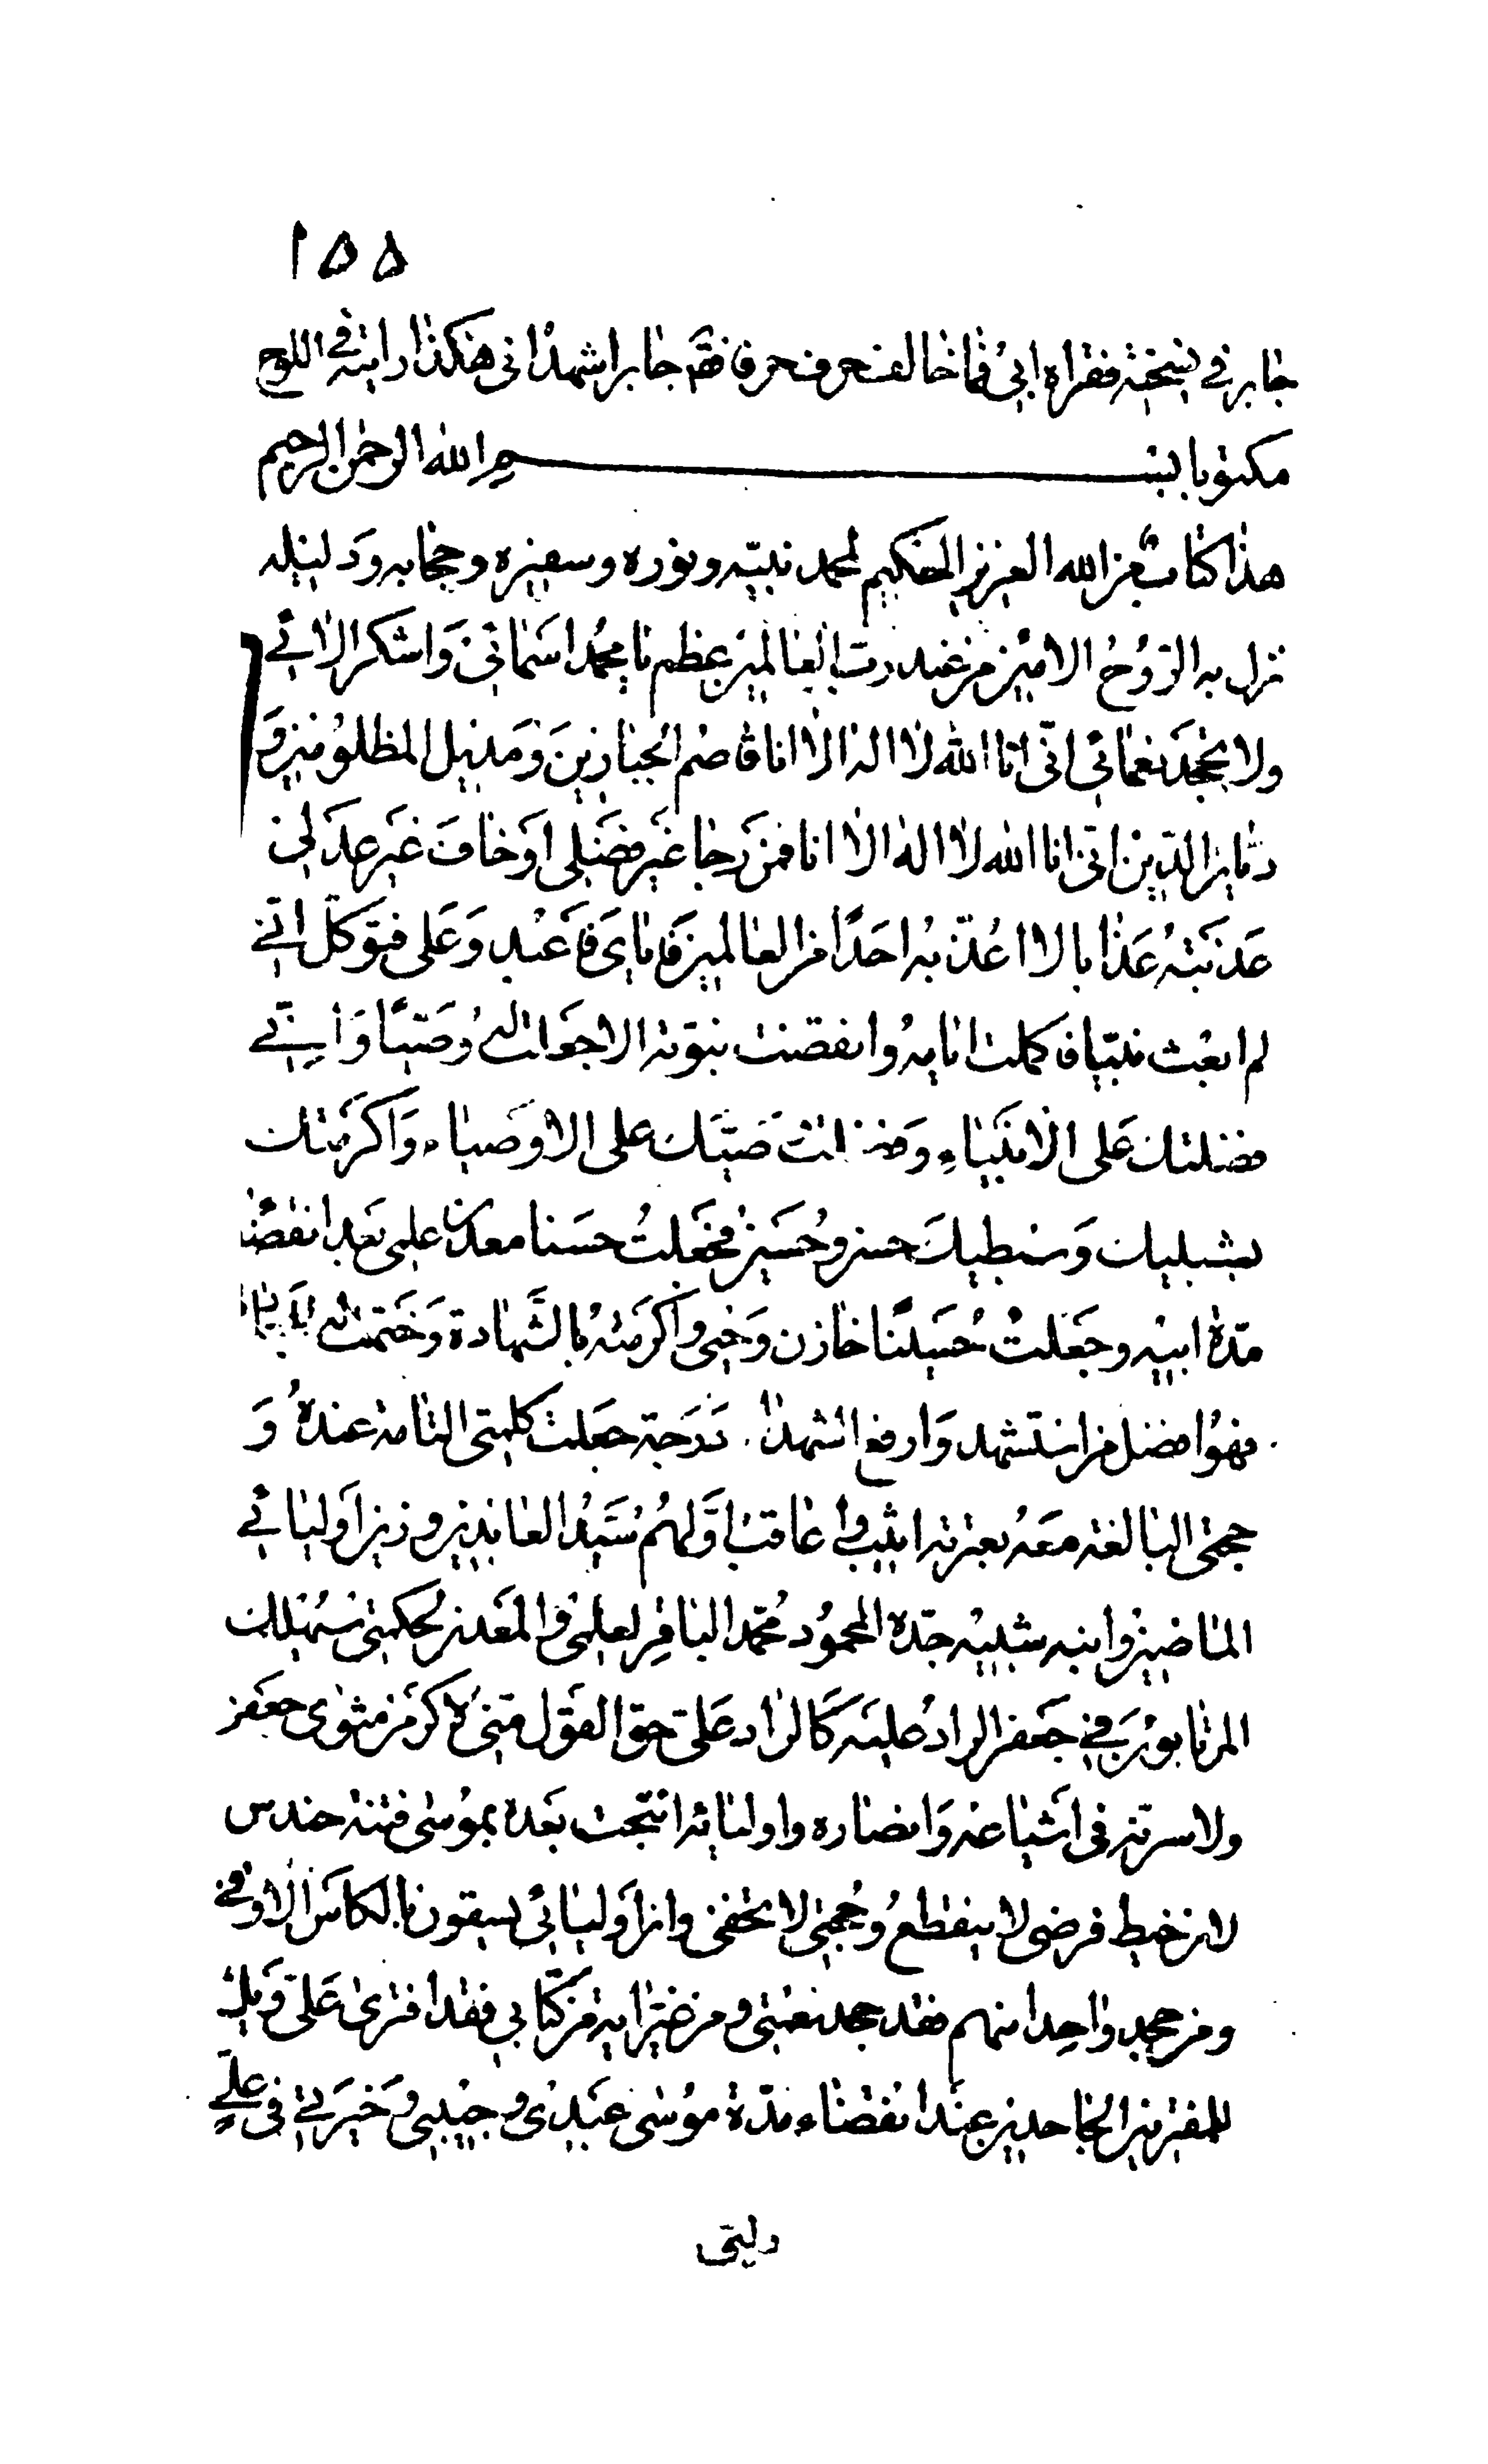 ١٥٥
جابر في نسخته فقراه ابي فما خالف حرف حرفا فقال جابر اشهد اني هكذا رايته في اللوح
مكتوبا بسم الله الرحمن الرحيم
هذا كتاب من الله العزيز الحكيم لمحمد نبيّه ونوره وسفيره وحجابه ودليله
نزل به الرّوُحُ الامين من عند ربّ العالمين عظم يا محمّد اسمائي وَاشكر الائي
ولا تجحَد نعمائي انّي انا الله لا اله الا انا قاصم الجبارينَ وَمديل المظلومين و
ديّان الدّين انّي انا الله لا اله الا انا فمن رَجا غير فضَلي اوَ خافَ غَير عدَلي
عَذبتهُ عَذابا لا اعُذّبهُ احَدًا من العالمين فاياىَ فَاعَبْد وَعَلى فتوكل انّي
لم ابعث نبيّا فاكملت ايامهُ وانقضت نبوّته الا جعَلت لهُ وَصيّا وَانّي
فضلتك عَلى الانبَياءِ وَفضلت وَصيّك على الاوصَياء وَاكرَمتك
بشبليك وَسبطيك حسن وحُسَين فجعَلتُ حسَنا معدن علمي بَعد انقضا
مدّة ابيه وجَعَلتُ حُسَينًا خازن وَحيي وَاكرَمتهُ بالشَّهادة وَختمت له
فهوُ افضل من استشهد وَارفع الشهداء دَرَجة جعَلت كلمتي التامة عندهُ وَ
حجتي البالغة معَهُ بعترته اثيب و اعاقب اوَّلهُم سَيّدُ العابدين وزين اَوليائي
الماضين وابنه شبيه جدّه المحموُد محُمّد الباقِر لعلمي والمعَدن لحكمتي سَيُهلك
المرتابوُنَ في جَعفر الرادُ عليَه كَالراد عَليّ حق القَول منّي لاكرَمن مثوى جعَفر
ولاسرنه في اَشياعه وَانصاره واوليائه انتجت بعَده بموُسى فتنة حندس
لان خيط فرضي لا ينقطعُ وُحجتي لا تخفى وان اَوليائي يسقون بالكاَس الاوفى
ومن جحد واحِدا منهم فقد جحد نعمتي ومن غيّر اية من كتابي فقد افترى عَلىّ وَيل
للمفترين الجاحدين عند انقضاء مدّة موُسى عَبدي وحبيبي وَخيَرَتي في علي
وليّي